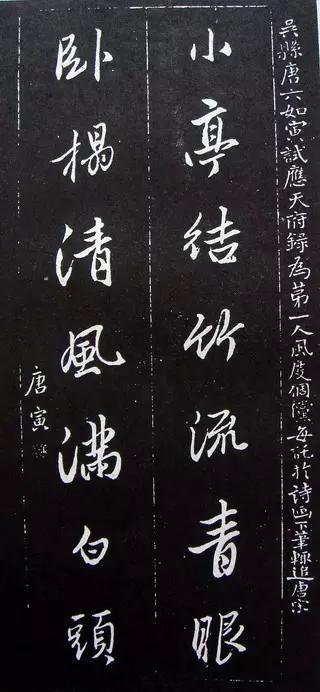 吳縣唐六如寅試應天府錄為第一人風度個儻每託於詩画下筆輒追唐宗
小亭結竹流青眼
卧榻清風满白頭
唐寅